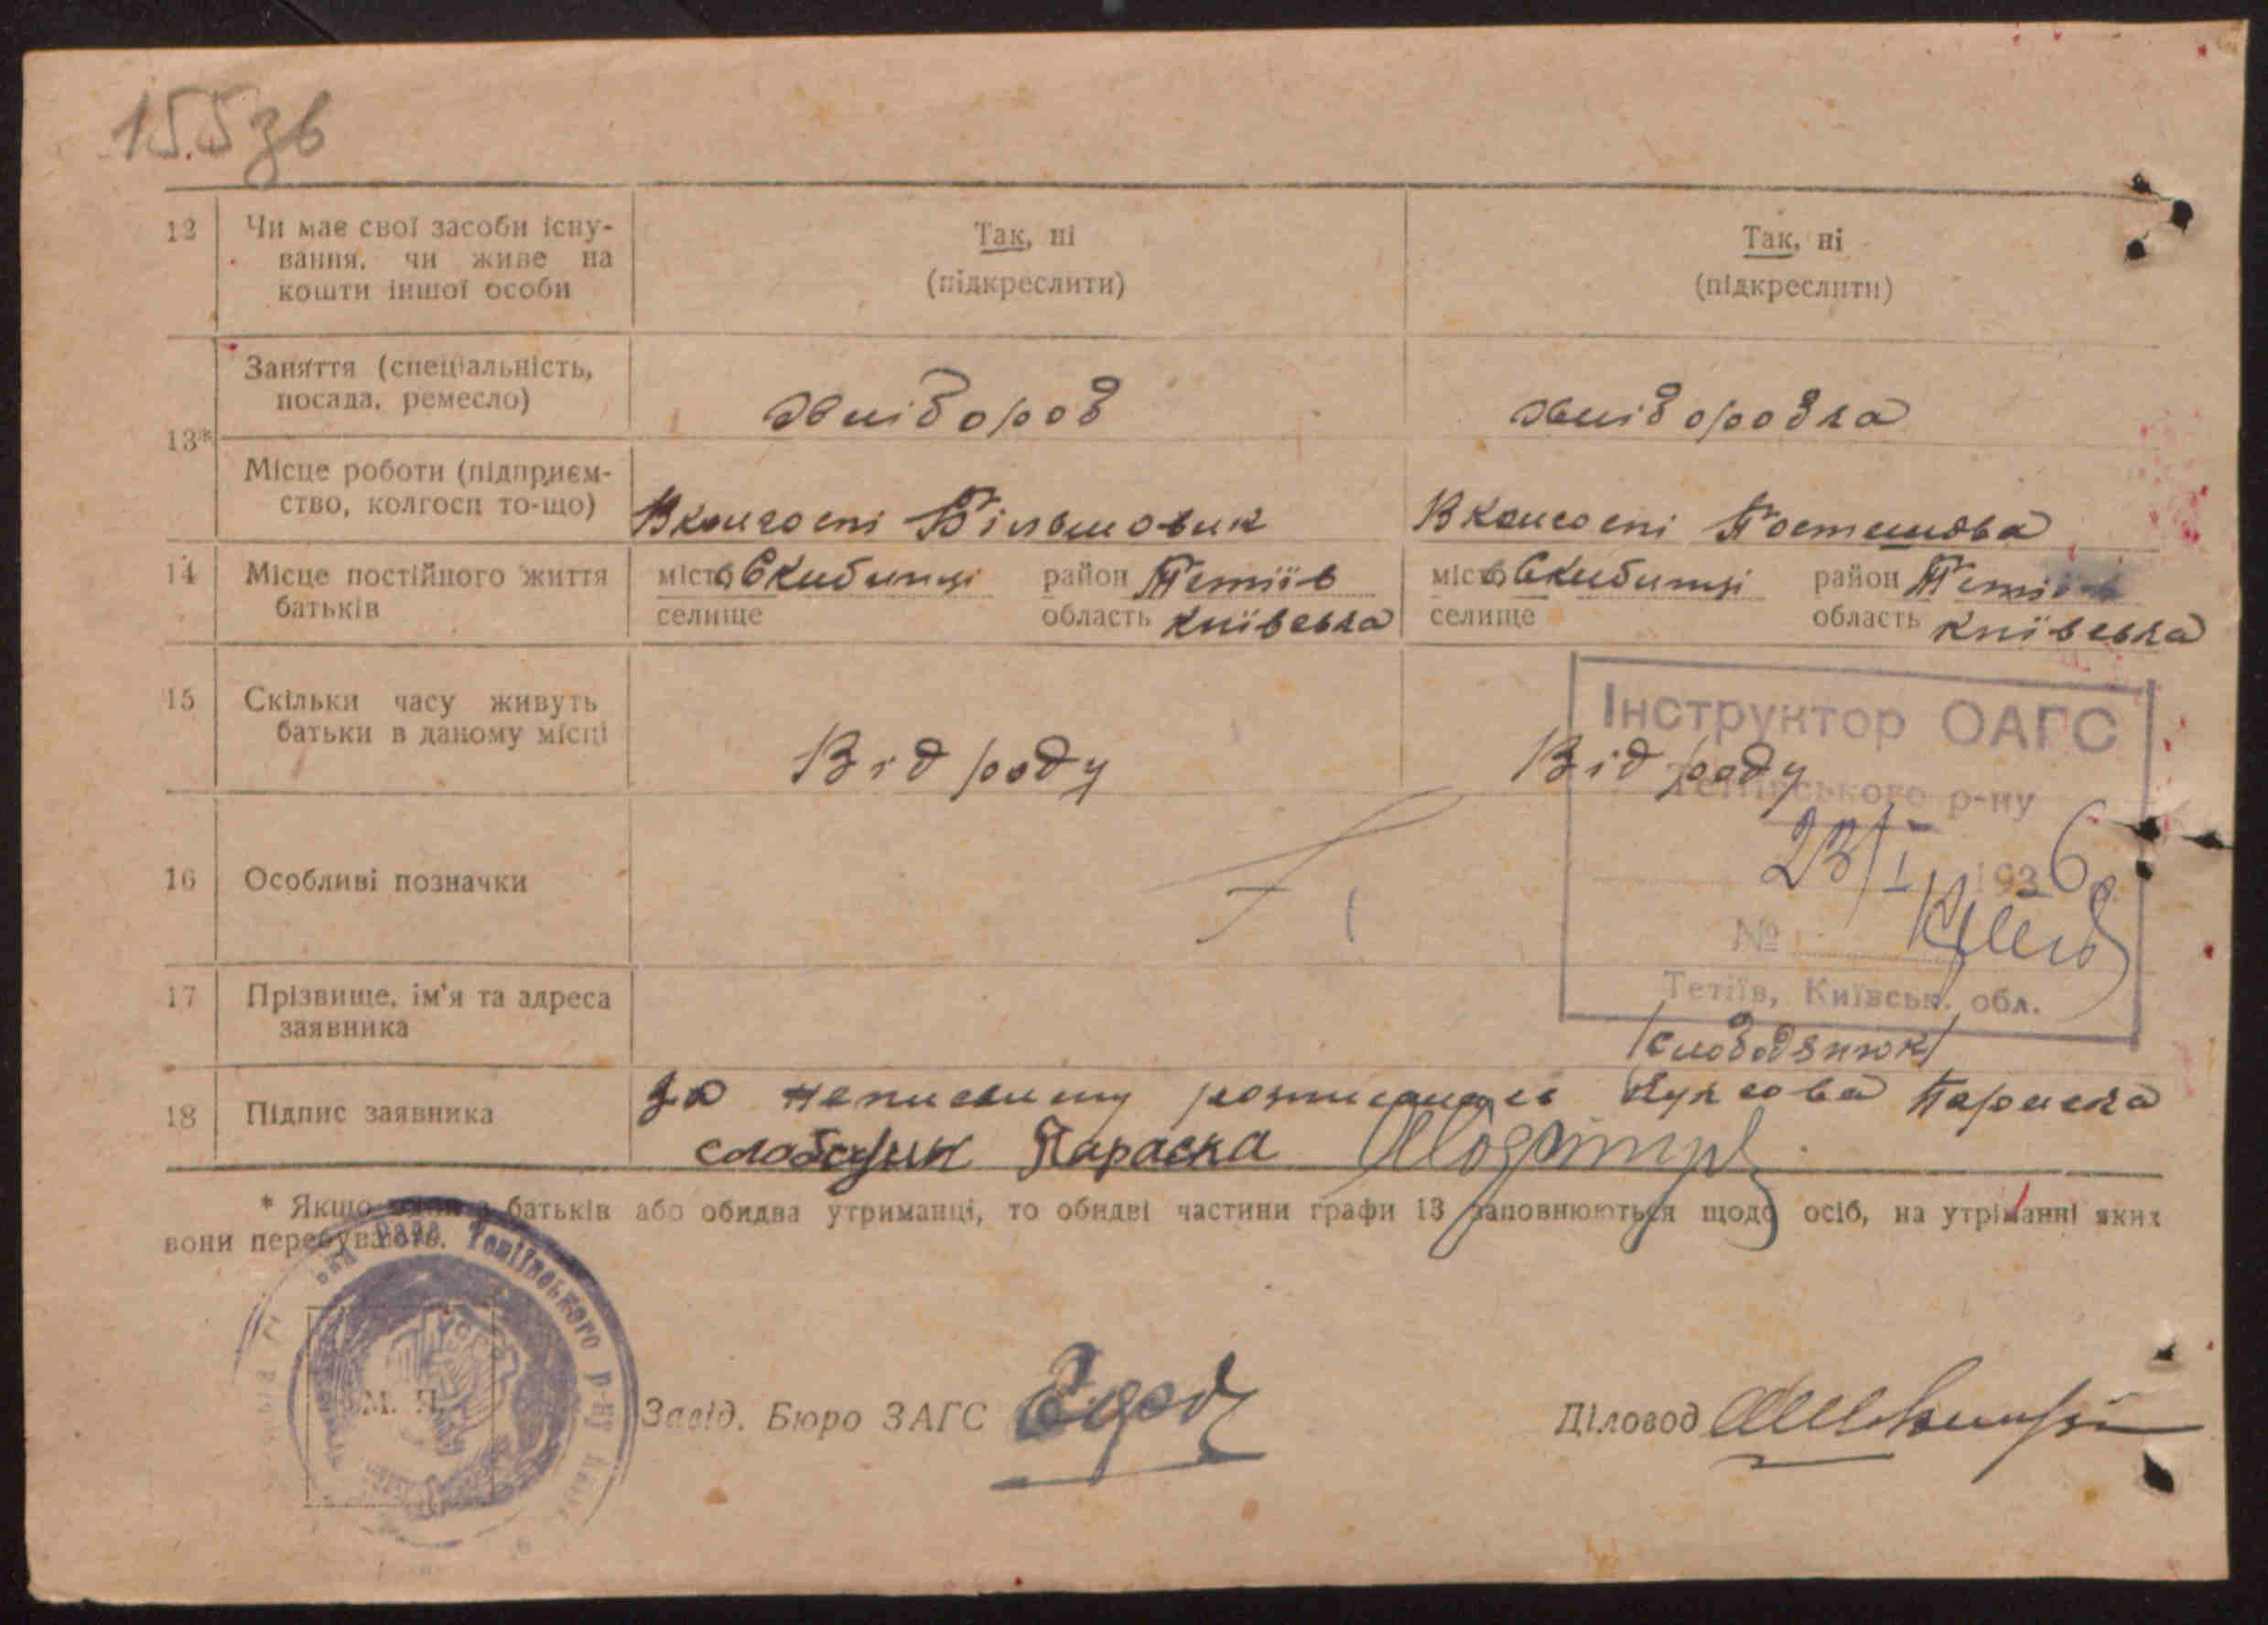 155 зв
12 Чи має свої засоби існу-
вання, чи живе на
кошти іншої особи
Так, ні
(підкреслити)
Так, ні
(підкреслити)
13*
Заняття (спеціальність,
посада, ремесло)
хлібороб
хліборобка
Місце роботи (підприєм-
ство, колгосп то-що)
В колгоспі Більшовик
В колгоспі Постишова
14 Місце постійного життя
батьків
місто Скибинці район Тетіїв
селище область Київська
місто Скибинці район Тетіїв
селище область Київська
15 Скільки часу живуть
батьки в даному місці
Від роду
Від роду
Інструктор ОАГС
Тетіївського р-ну
23/I 1936
№
Тетіїв, Київськ. обл.
16 Особливі позначки
17 Прізвище, ім'я та адреса
заявника
/Слободянюк/
18 Підпис заявника
За неписьмену Параска
Параска
* Якщо один з батьків або обидва утриманці, то обидві частини графи 13 заповнюються щодо осіб, на утриманні яких
вони перебувають.
Рада Тетіївського р-ну
М. П.
Завід. Бюро ЗАГС
Діловод